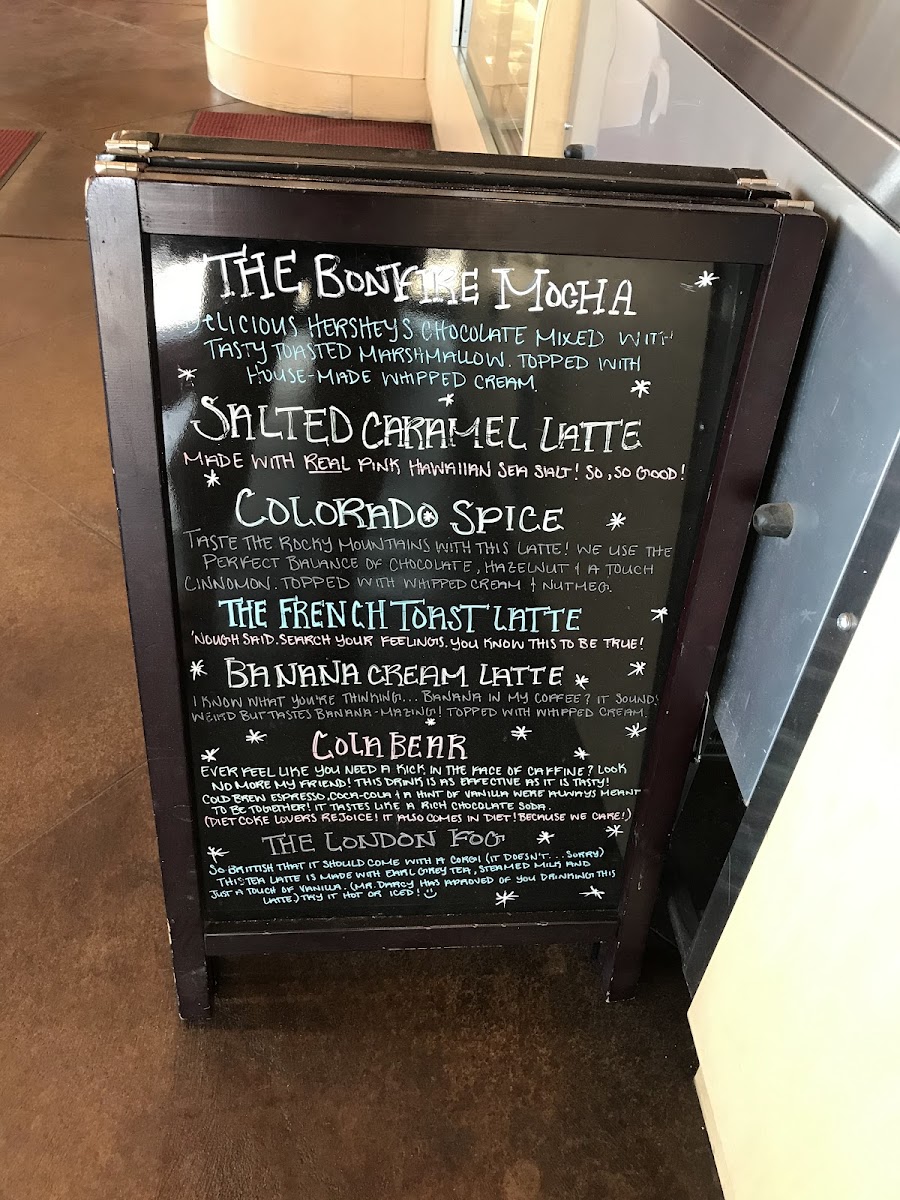 THE BONFIRE MOCHA
DELICIOUS HERSHEY'S CHOCOLATE MIXED WITH
TASTY TOASTED MARSHMALLOW. TOPPED WITH
HOUSE-MADE WHIPPED CREAM.
SALTED CARAMEL LATTE
MADE WITH REAL PINK HAWAIIAN SEA SALT! SO, SO GOOD!
COLORADO SPICE
TASTE THE ROCKY MOUNTAINS WITH THIS LATTE! WE USE THE
PERFECT BALANCE OF CHOCOLATE, HAZELNUT & A TOUCH
CINNOMON. TOPPED WITH WHIPPED CREAM & NUTMEG.
THE FRENCH TOAST LATTE
'NOUGH SAID. SEARCH YOUR FEELINGS. YOU KNOW THIS TO BE TRUE!
BANANA CREAM LATTE
I KNOW WHAT YOU'RE THINKING... BANANA IN MY COFFEE? IT SOUNDS
WEIRD BUT TASTES BANANA-MAZING! TOPPED WITH WHIPPED CREAM.
COLA BEAR
EVER FEEL LIKE YOU NEED A KICK IN THE FACE OF CAFFINE? LOOK
NO MORE MY FRIEND! THIS DRINK IS AS EFFECTIVE AS IT IS TASTY!
COLD BREW ESPRESSO, COCA-COLA & A HINT OF VANILLA WERE ALWAYS MEANT
TO BE TOGETHER! IT TASTES LIKE A RICH CHOCOLATE SODA.
(DIET COKE LOVERS REJOICE! IT ALSO COMES IN DIET! BECAUSE WE CARE!)
THE LONDON FOG
SO BRITTISH THAT IT SHOULD COME WITH A CORGI (IT DOESN'T... SORRY)
THIS TEA LATTE IS MADE WITH EARL GREY TEA, STEAMED MILK AND
JUST A TOUCH OF VANILLA. (MR. DARCY HAS APROVED OF YOU DRINKING THIS
LATTE) TRY IT HOT OR ICED!